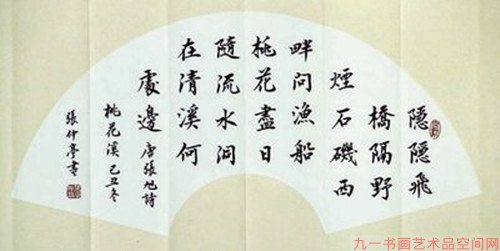 隱隱飛
橋隔野
煙石磯西
畔問漁船
桃花盡日
隨流水洞
在清溪何
處邊唐張旭詩
桃花溪己丑冬
張仲亭書
九一书画艺术品空间网